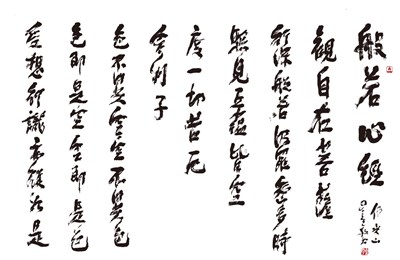 般若心經
觀自在菩薩
行深般若波羅蜜多時
照見五蘊皆空
度一切苦厄
舍利子
色不異空空不異色
色即是空空即是色
受想行識亦復如是